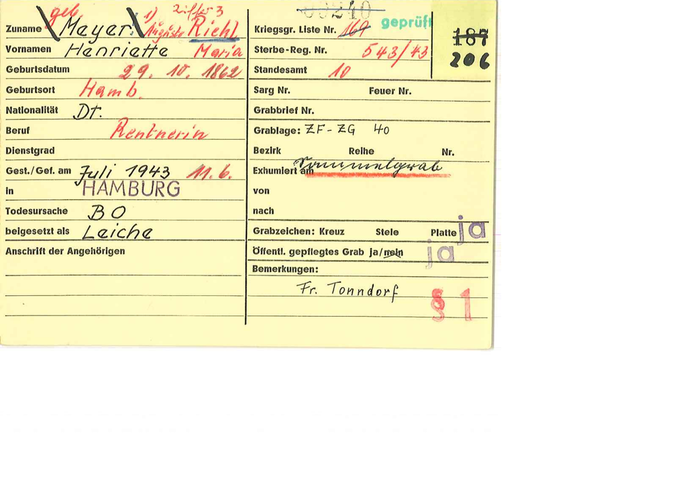 geb. 1) Ziffer 3
Zuname Mayer Auguste Riehl
Vornamen Henriette Maria
Geburtsdatum 29. 10. 1862
Geburtsort Hamb.
Nationalität Dt.
Beruf Rentnerin
Dienstgrad
Gest./Gef. am Juli 1943 11.6.
in HAMBURG
Todesursache BO
beigesetzt als Leiche
Anschrift der Angehörigen
geprüft
Kriegsgr. Liste Nr. 169
187
206
Sterbe-Reg. Nr. 543/43
Standesamt 10
Sarg Nr. Feuer Nr.
Grabbrief Nr.
Grablage: ZF-ZG 40
Bezirk Reihe Nr.
Exhumiert am Sammelgrab
von
nach
Grabzeichen: Kreuz Stele Platte ja
Öffentl. gepflegtes Grab ja/nein ja
Bemerkungen:
Fr. Tonndorf
§ 1